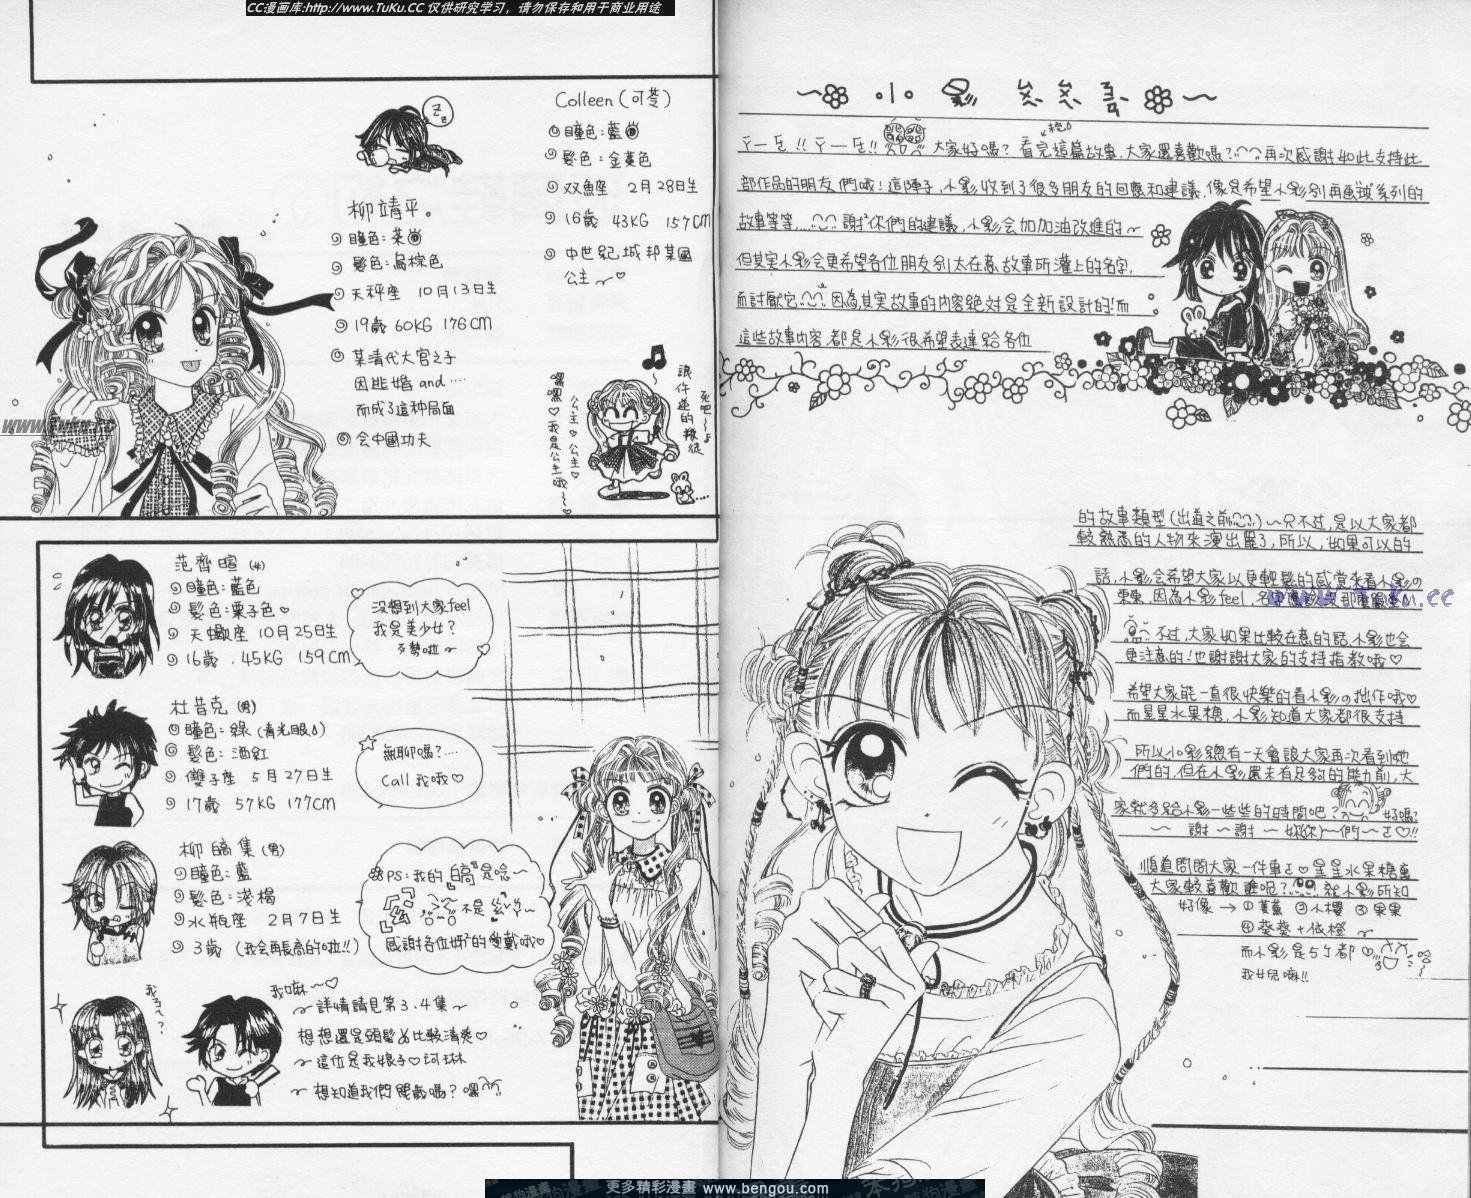 CC漫画库:http://www.TuKu.CC 仅供研究学习，请勿保存和用于商业用途
柳靖平。
天秤座 10月13日生
19歲 60KG 176CM
某清代大官之子
因逃婚 and‥‥
而成了這种局面
会中國功夫
Colleen (可苓)
髮色:金黃色
双魚座 2月28日生
16歲 43KG 157CM
中世紀城邦某國
公主~♡
公主♡公主♡
嘿嘿♡我是公主哦~~♡
范齊暄 (女)
瞳色:藍色
髮色:栗子色♡
天蠍座 10月25日生
16歲 .45KG 159CM
没想到大家feel
我是美少女?
杜昔克 (男)
瞳色:綠(青光眼)
髮色:酒紅
雙子座 5月27日生
17歲 57KG 177CM
無聊嗎?‥‥
Call 我哦♡
(男)
瞳色:藍
髮色:淺褐
水瓶座 2月7日生
3歲 (我会再長高的啦!!)
感謝各位
我嘛~~♡
~詳情請見第3.4集
想想還是頭髮
比較清爽♡
~這位是我娘子♡珂琳
~想知道我們
嗎? 嘿
大家好嗎? 看完這篇故事,大家還喜歡嗎? 再次感謝如此支持此
部作品的朋友們哦!這陣子,小影收到了很多朋友的回應和建議,像是希望小影別再画彼系列的
故事等等‥‥ 謝謝你們的建議,小影会加加油改進的~
但其实小影会更希望各位朋友別太在意故事所灌上的名字,
而討厭它 因為,其实故事的内容絕対是全新設計的!而
這些故事内容,都是小影很希望表達給各位
的故事類型(出道之前 )~只不过,是以大家都
較熟悉的人物來演出罷了,所以,如果可以的
話,小影会希望大家以更輕鬆的感覚來看小影の
東東,因為小影feel,
www.TuKu.cc
不过,大家如果比較在意的話,小影也会
更注意的!也謝謝大家的支持指教哦♡
希望大家能一直很快樂的看小影の拙作哦♡
而星星水果糖,小影知道大家都很支持
所以小影總有一天會讓大家再次看到她
們的,但在小影還未有足夠的能力前,大
家就多給小影一些些的時間吧? 好嗎?
~ 謝~謝~妳(你)~們~
順道問問大家一件事 ♡星星水果糖裏
大家較喜歡誰呢? 就小影所知
好像→ ① ②小櫻 ③果果
④葵葵+依橙~
而小影是5个都
我女兒嘛!!
更多精彩漫畫 www.bengou.com